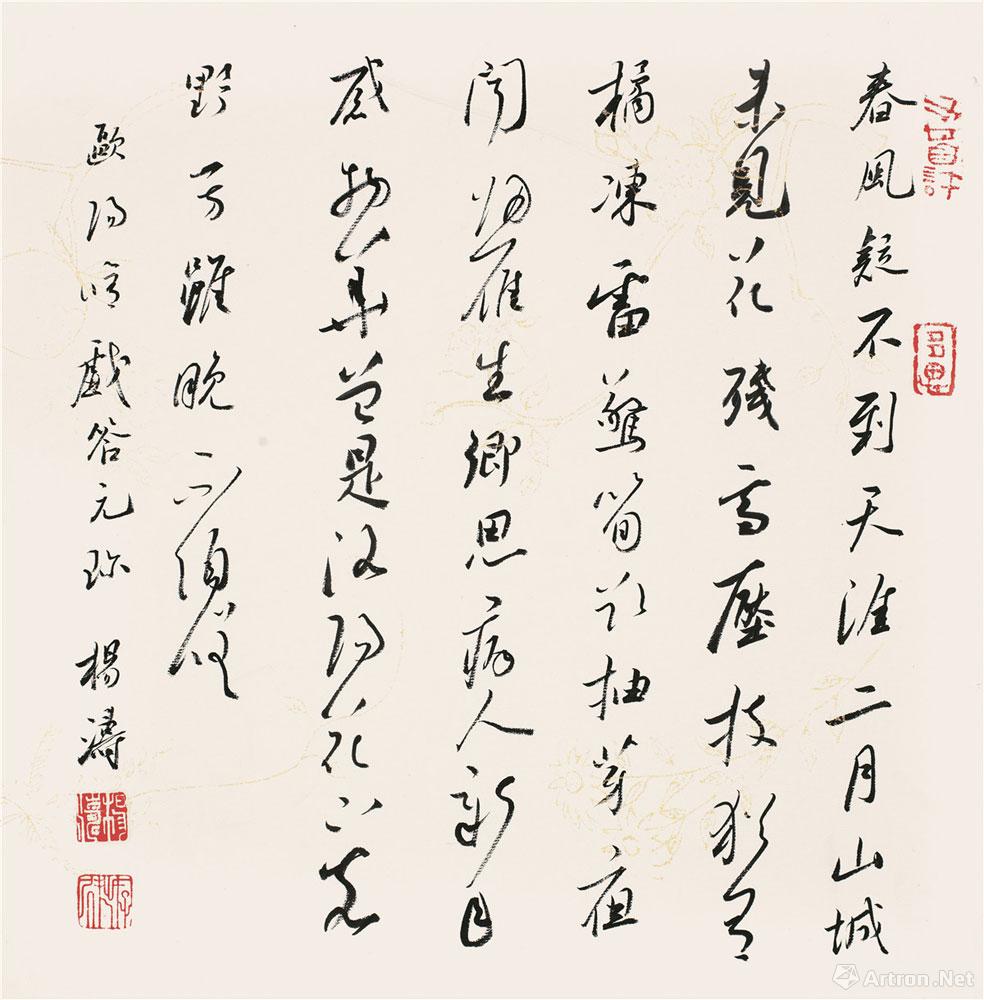 春風疑不到天涯二月山城
未見花殘雪壓枝猶有
橘凍雷驚筍欲抽芽夜
聞歸雁生鄉思病入新年
感物華曾是洛陽花下客
野芳雖晚不須嗟
歐陽脩戲答元珍 楊濤
Artron.Net